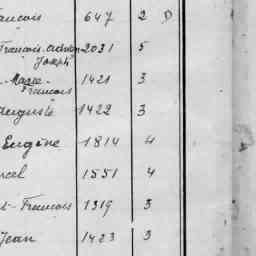 ançois 647 2 D
François-Adrien 2031 5
Joseph
-Marie- 1421 3
François
Auguste 1422 3
Eugène 1814 4
rcel 1551 4
t-François 1319 3
Jean 1423 3